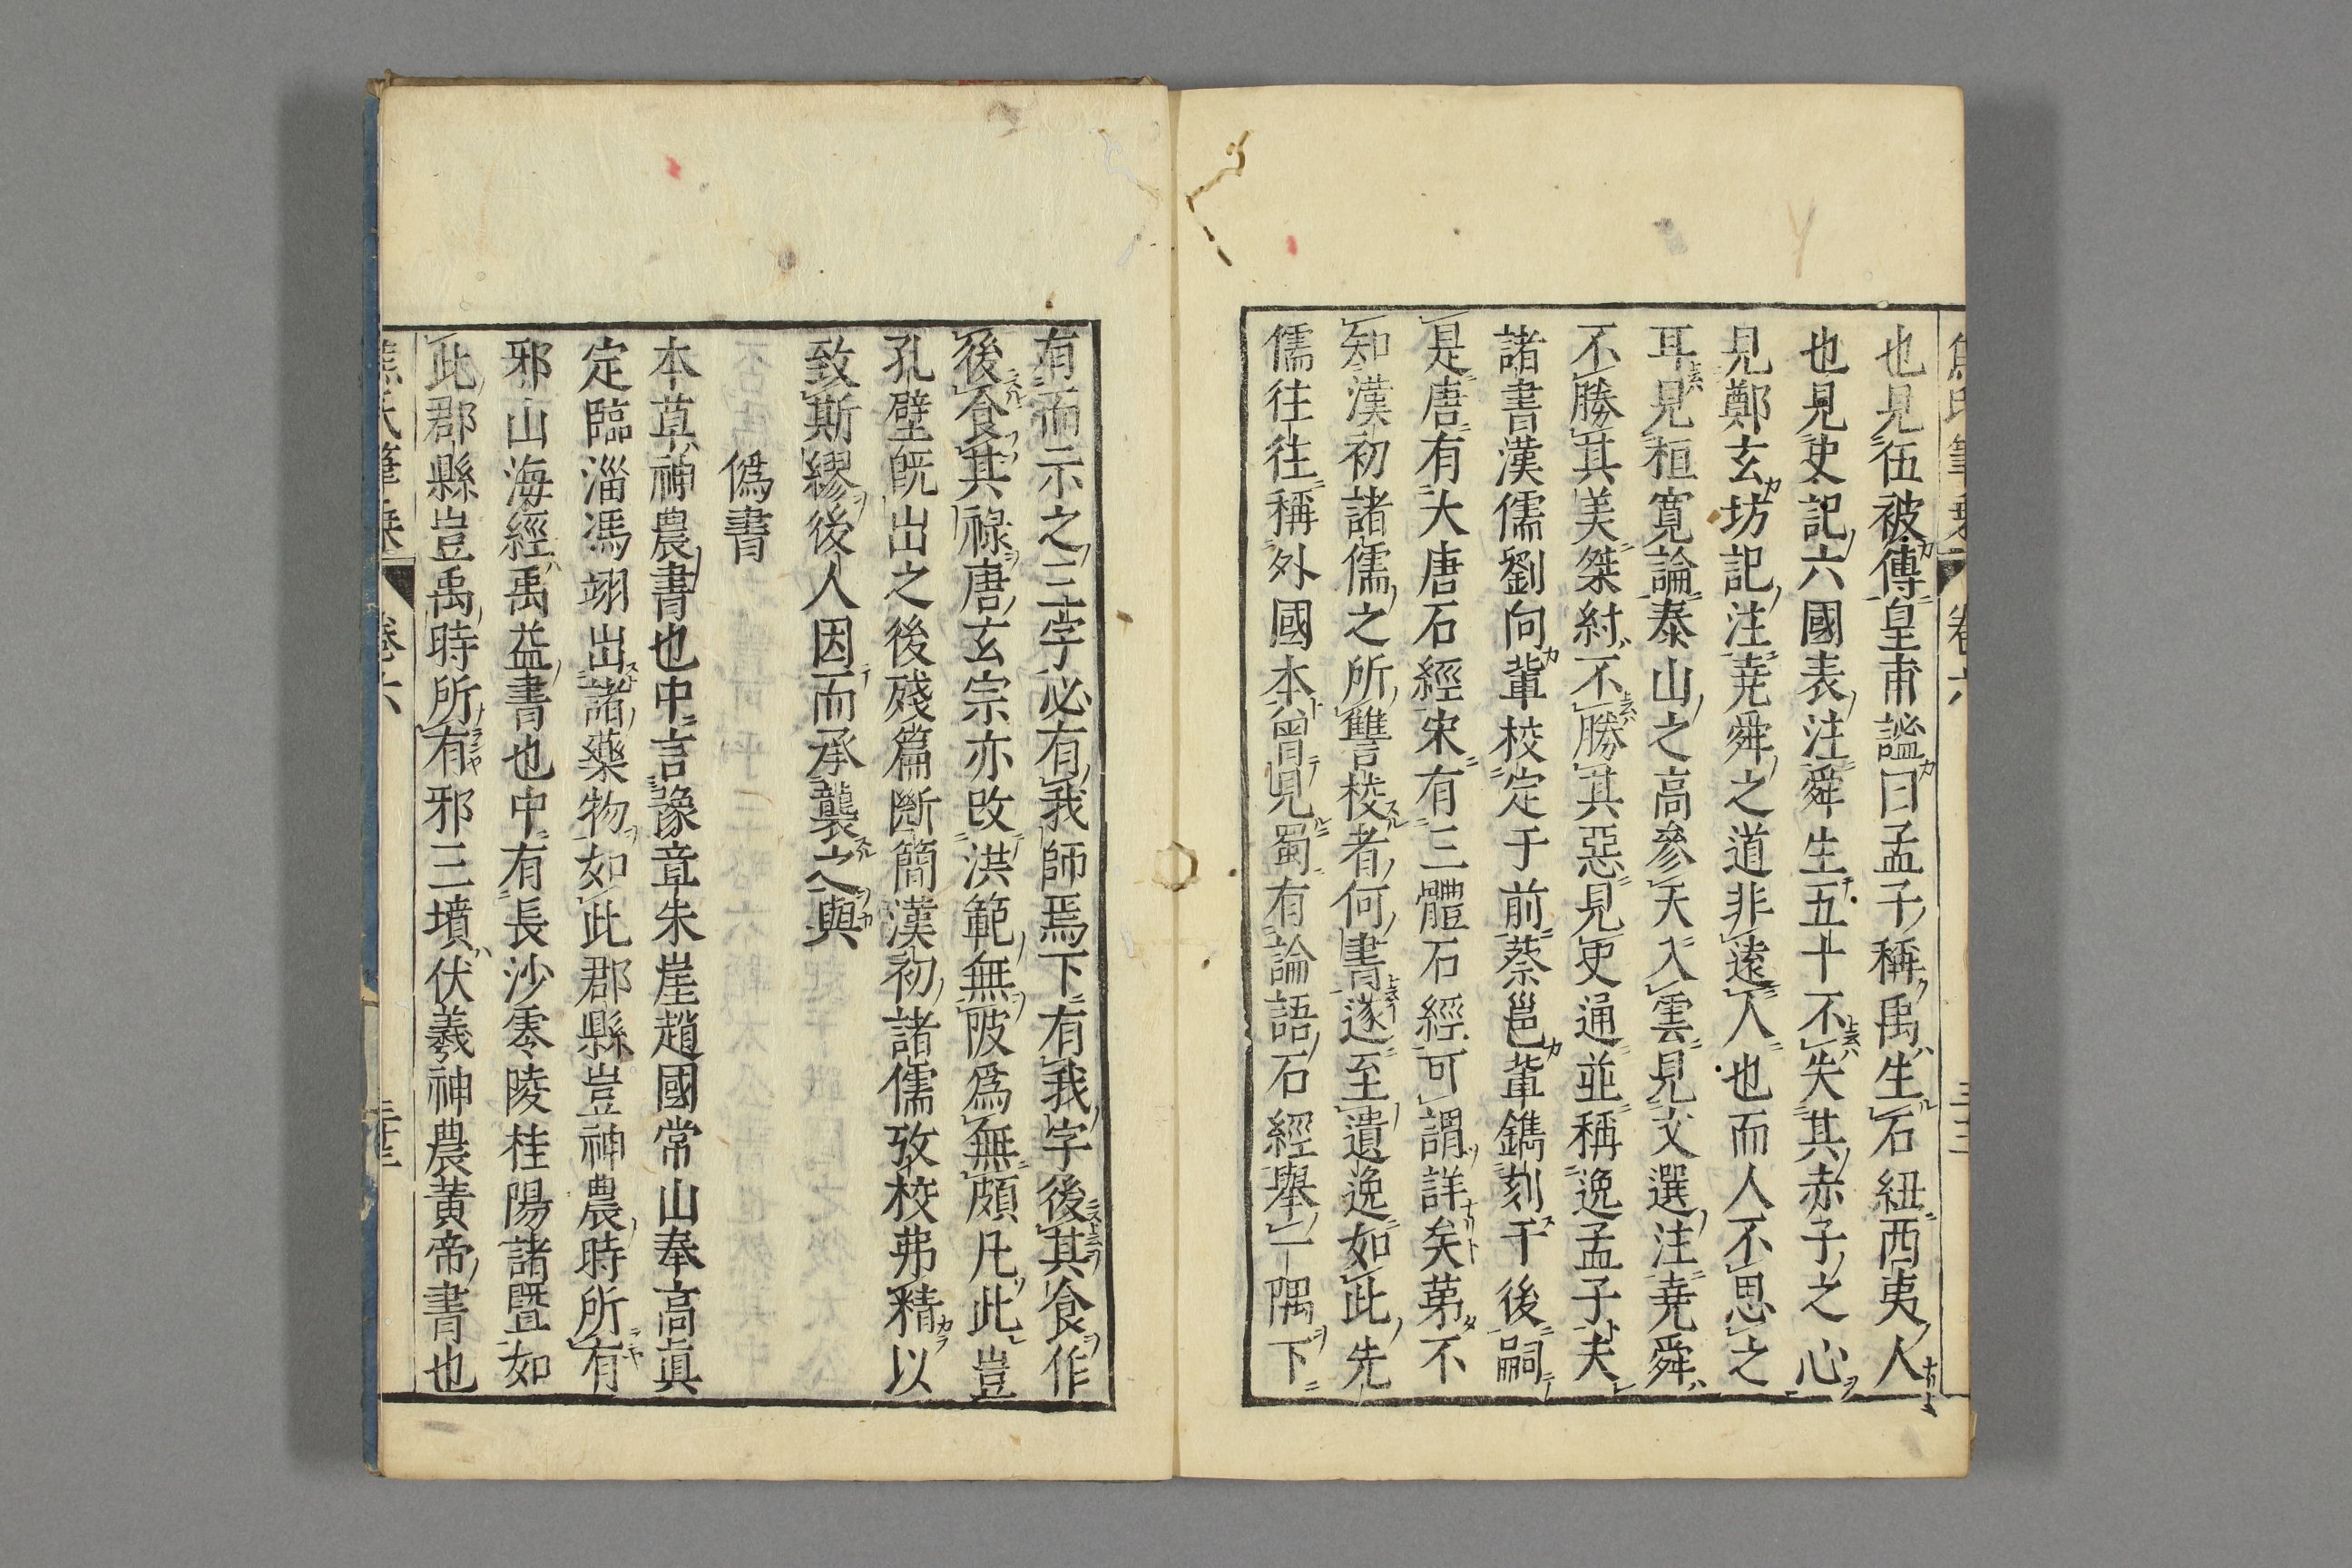 也見伍被傳皇甫謐曰孟子稱禹生石紐西夷人
也見史記六國表注舜生五十不失其赤子之心
見鄭玄坊記注尭舜之道非遠人也而人不思之
耳見桓寛論泰山之高參天入雲見文選注尭舜
不勝其美桀紂不勝其惡見史通並稱逸孟子夫
諸書漢儒劉向輩校定于前蔡邕輩鐫刻于後嗣
是唐有大唐石經宋有三體石經可謂詳矣苐不
知漢初諸儒之所讐校者何書遂至遺逸如此先
儒往往稱外國本曾見蜀有論語石經舉一隅下
有而示之三字必有我師焉下有我字後其食作
後食其祿唐玄宗亦改洪範無陂爲無頗凡此豈
孔壁既出之後殘篇斷簡漢初諸儒攷校弗精以
致斯繆後人因而承襲之與
僞書
本草神農書也中言豫章朱崖趙國常山奉高眞
定臨淄馮翊出諸藥物如此郡縣豈神農時所有
邪山海經禹益書也中有長沙零陵桂陽諸暨如
此郡縣豈禹時所有邪三墳伏羲神農黄帝書也